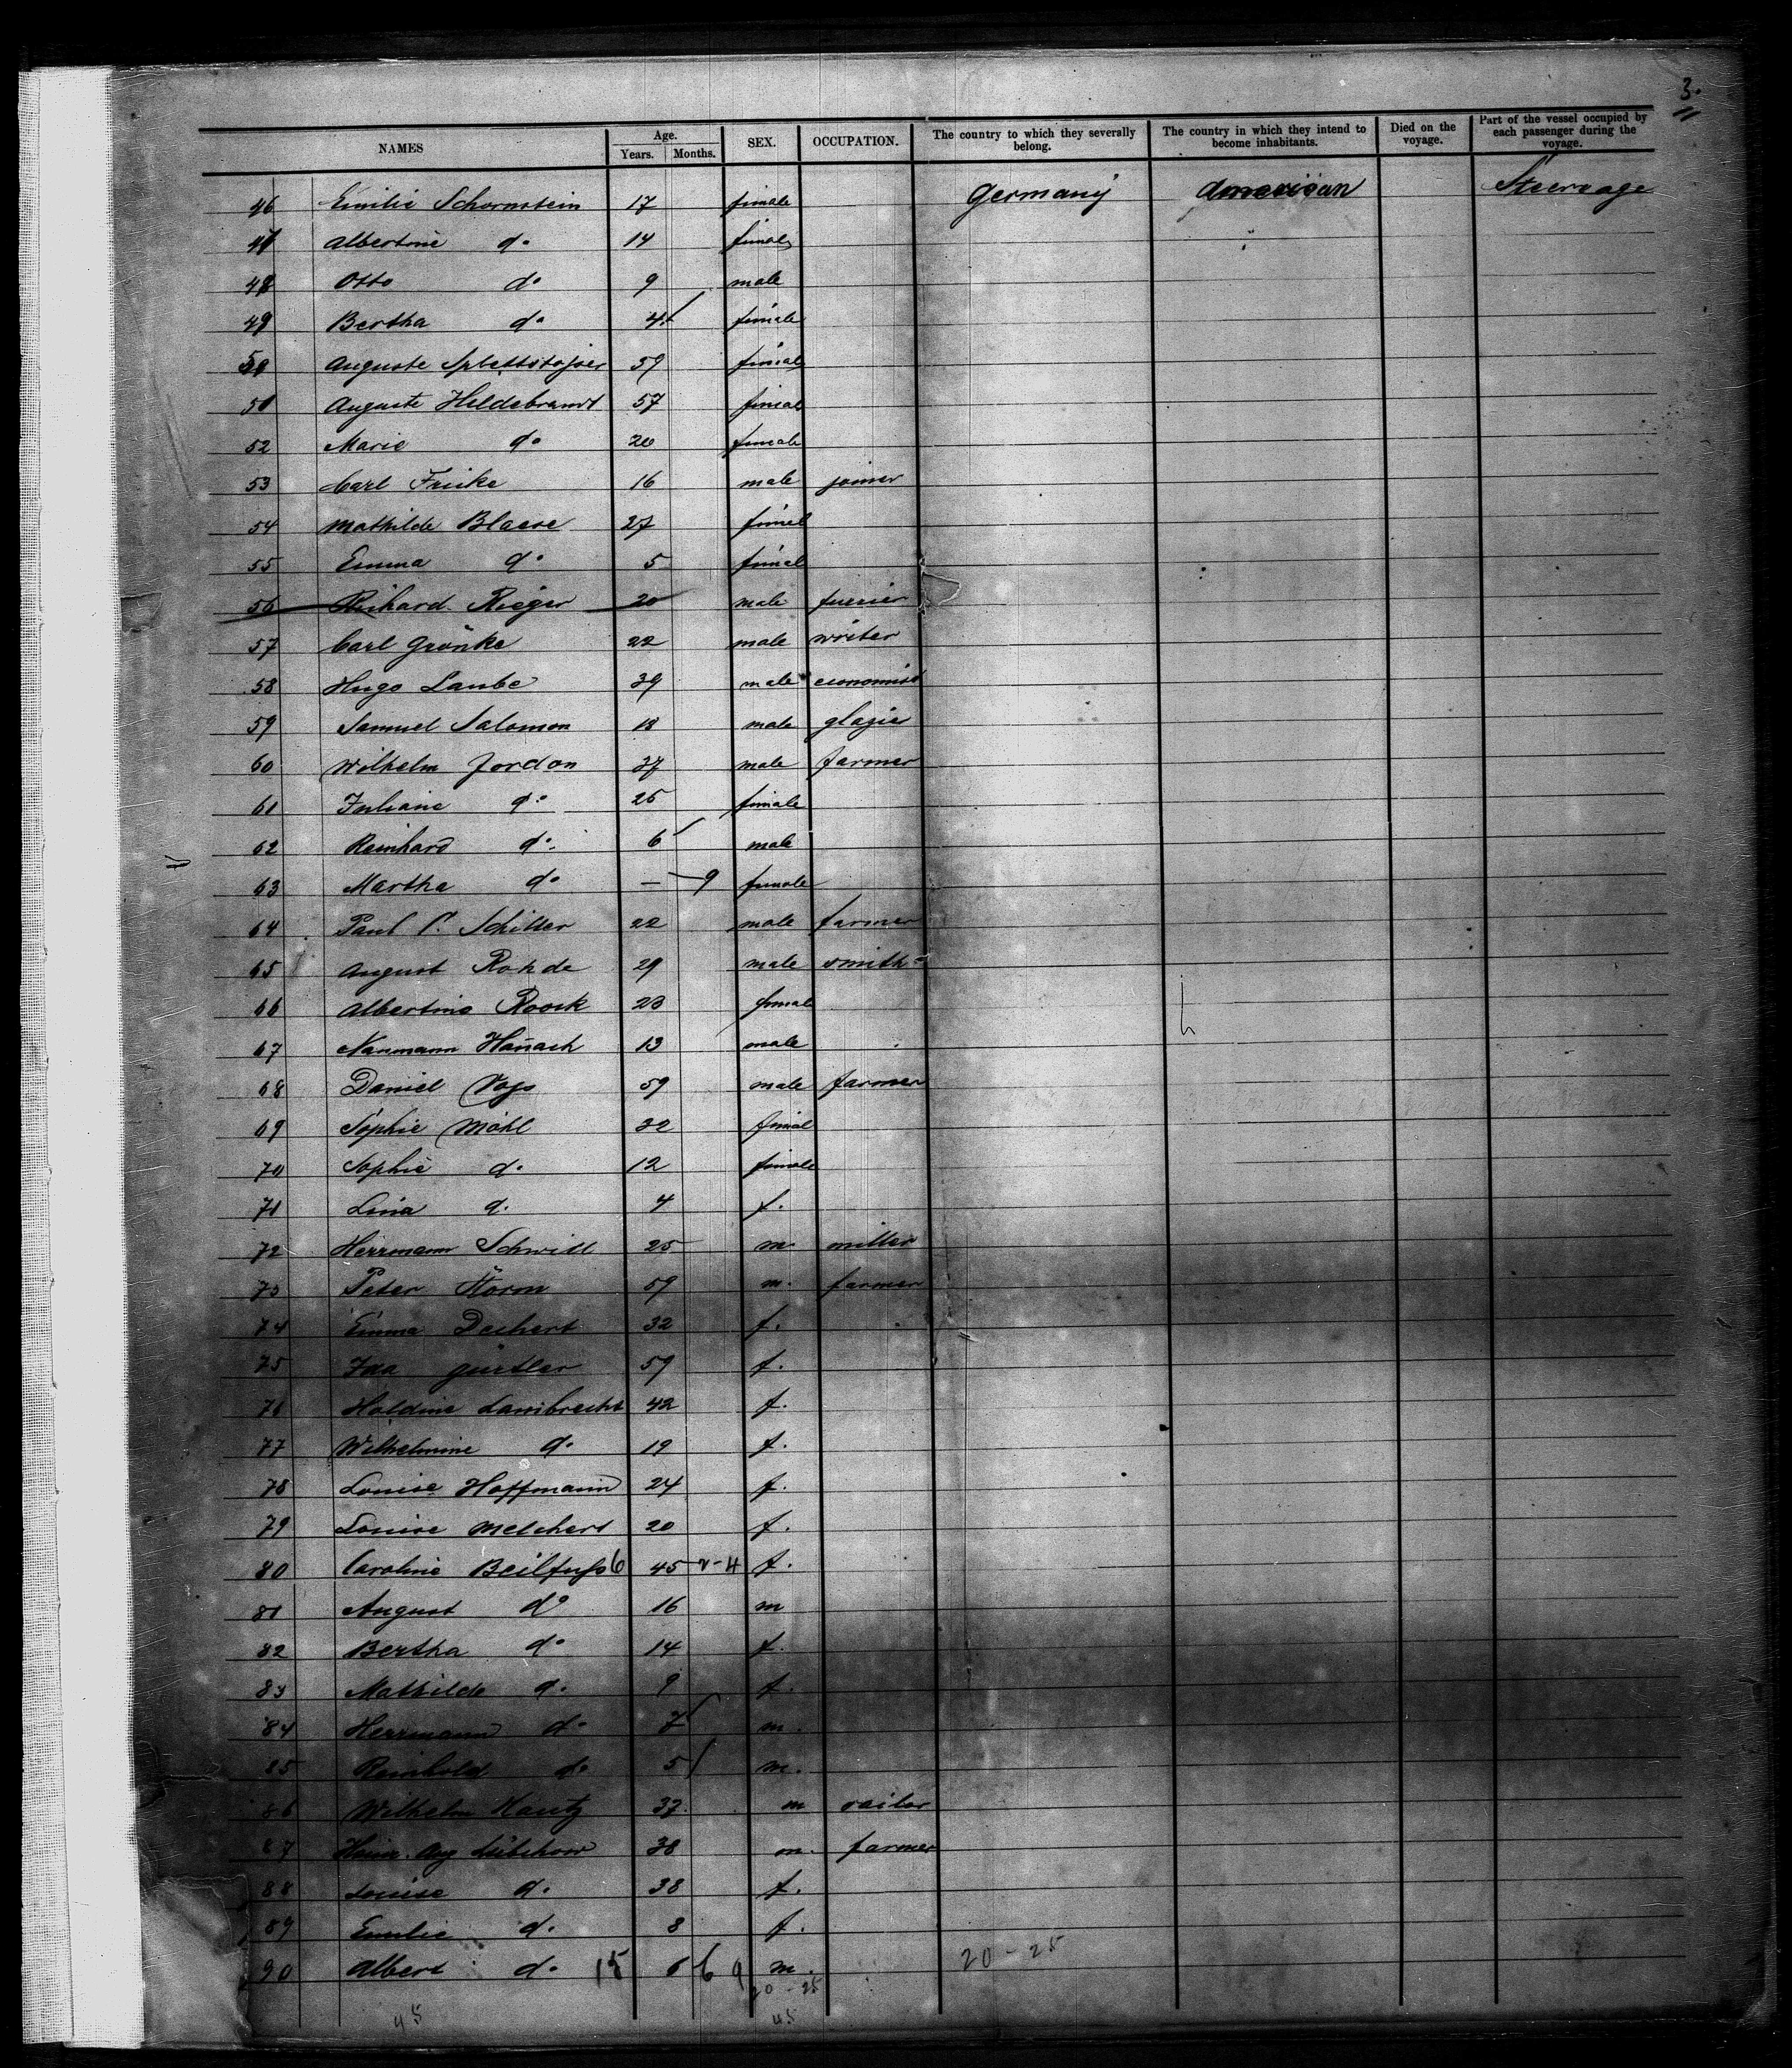 3.
NAMES Age. Years. Months. SEX. OCCUPATION. The country to which they severally belong. The country in which they intend to become inhabitants. Died on the voyage. Part of the vessel occupied by each passenger during the voyage.
46 Emilie Schornstein 17 female Germany American Steerage
47 Albertine do 14 female
48 Otto do 9 male
49 Bertha do 4 female
50 Auguste Splettstojser 59 female
51 Auguste Hildebrandt 57 female
52 Marie do 20 female
53 Carl Fricke 16 male joiner
54 Mathilde Blaese 27 female
55 Emma do 5 female
56 Richard Rieger 20 male furrier
57 Carl Grönke 22 male writer
58 Hugo Laube 39 male economist
59 Samuel Salomon 18 male glazier
60 Wilhelm Jordan 37 male farmer
61 Juliane do 25 female
62 Reinhard do 6 male
63 Martha do — 9 female
64 Paul Schiller 22 male farmer
65 August Rohde 29 male smith
66 Albertine 23 female
67 13 male
68 Daniel 59 male farmer
69 Sophie Möhl 32 female
70 Sophie do 12 female
71 Lina d. 4 f.
72 Herrmann Schwill 25 m. miller
73 Peter 59 m. farmer
74 Emma Deihert 32 f.
75 Ida Gürtler 59 f.
76 Lambrecht 42 f.
77 Wilhelmine do 19 f.
78 Louise Hoffmann 24 f.
79 Louise Melchert 20 f.
80 Caroline Beilfuss 6 45 f.
81 August do 16 m
82 Bertha do 14 f.
83 Mathilde do 9 f.
84 Herrmann do 7 m.
85 Reinhold do 5 m.
86 Wilhelm Kautz 37 m sailor
87 Aug 38 m. farmer
88 Louise do 38 f.
89 Emilie do 8 f.
90 Albert do 15 6 6 9 m. 20 - 25
20 - 25
45 45